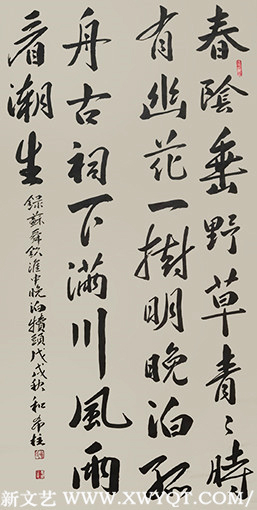 春陰垂野草青〻時
有幽花一樹明晚泊孤
舟古祠下滿川風雨
看潮生
錄蘇舜欽淮中晚泊犢頭戊戌秋和希柱
新文艺 WWW.XWYQT.COM